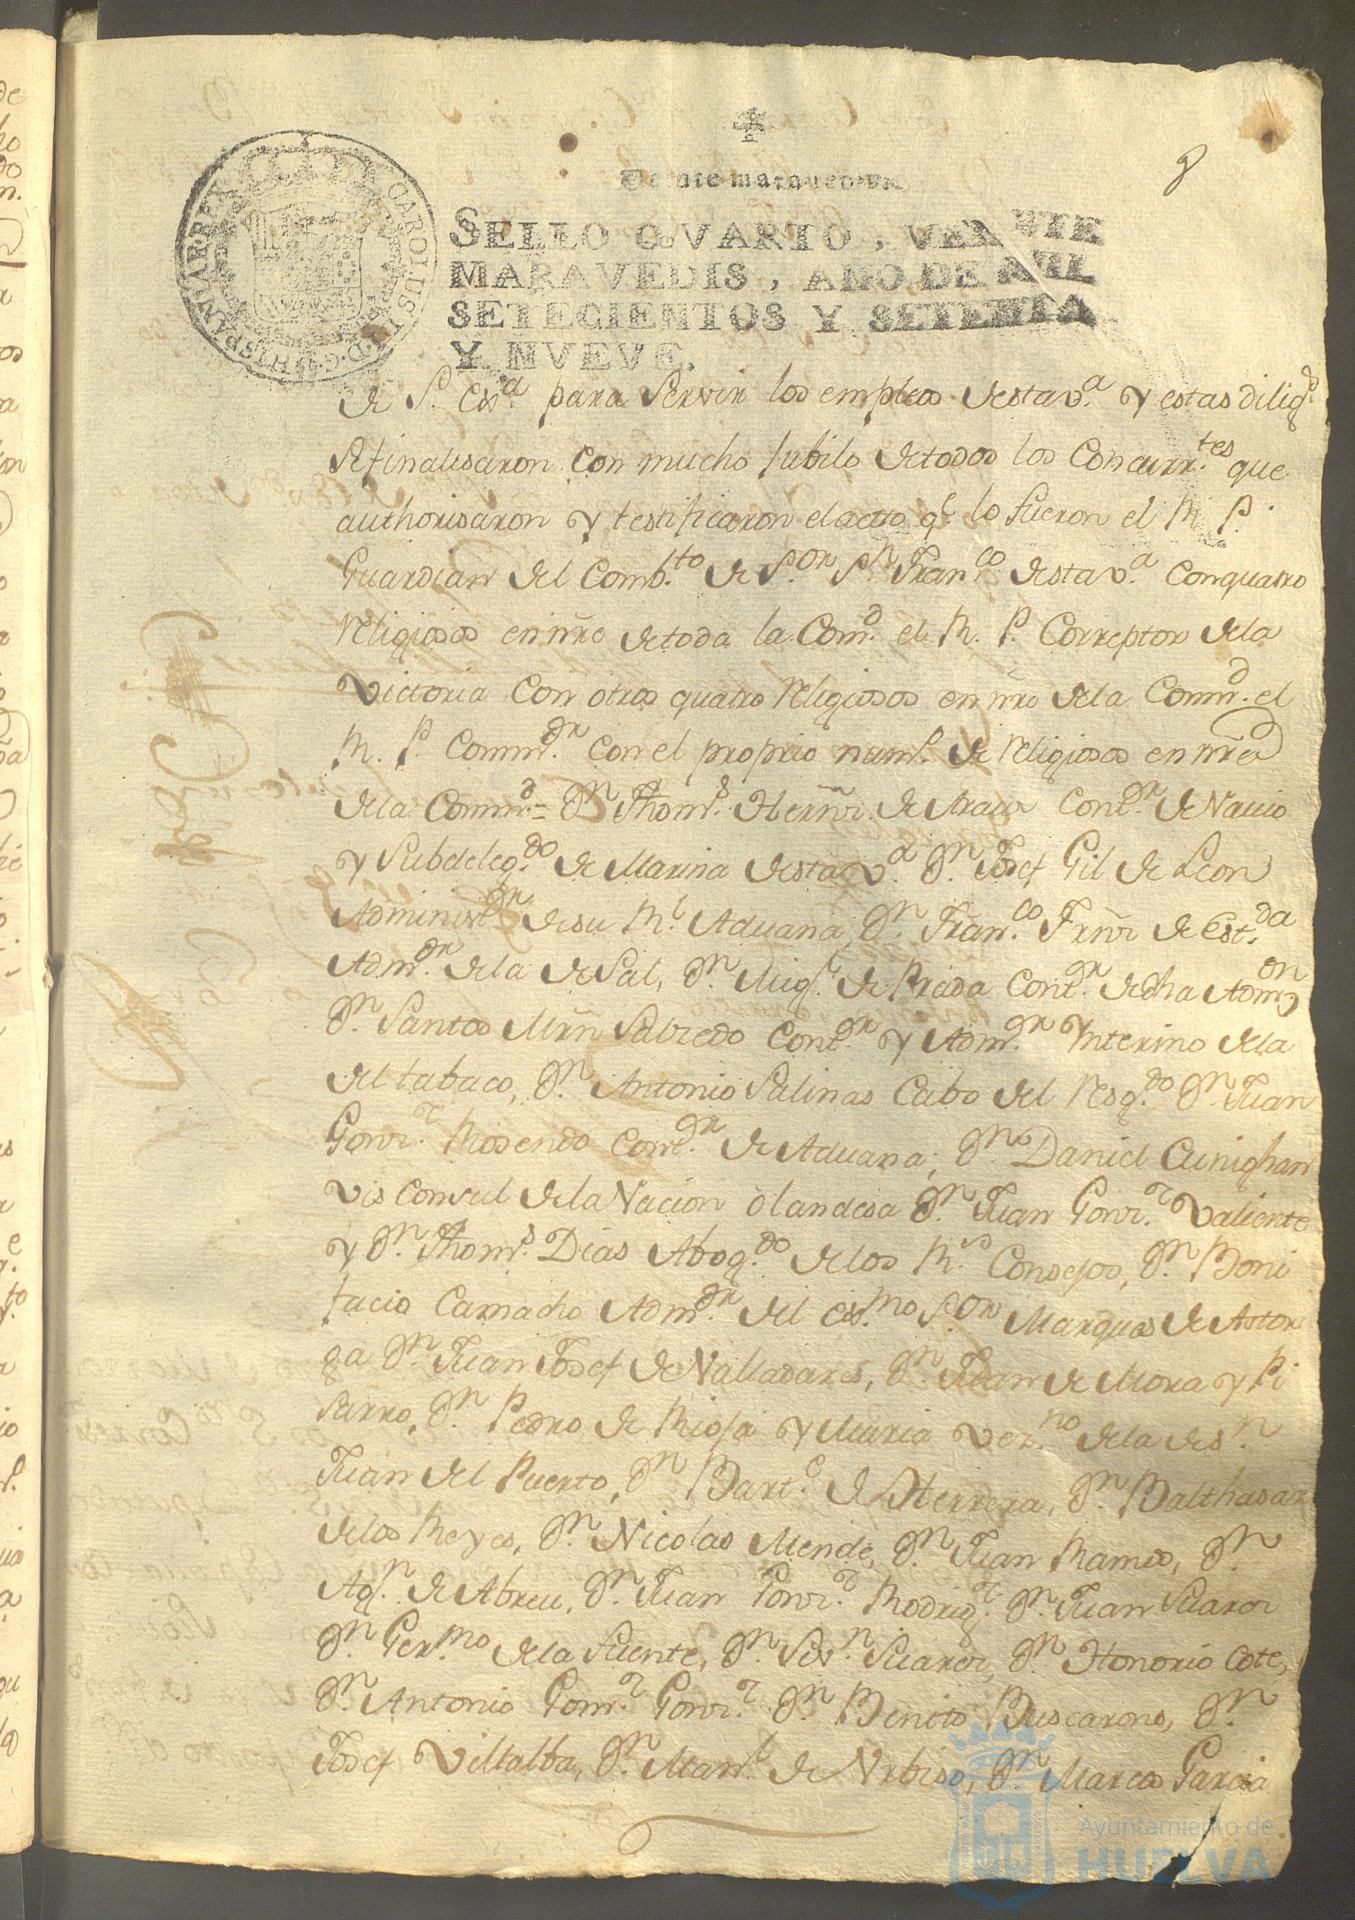 8
Veinte maravedis.
SELLO QVARTO, VEINTE
MARAVEDIS, AÑO DE MIL
SETECIENTOS Y SETENTA
Y NVEVE.
CAROLUS III D. G. HISPANIAR. REX
de S. Exª para servir los empleos destavª y estas diligs
sefinalisaron con mucho Jubilo detodos los Concurrtes que
authorisaron y testificaron elacto qe lo fueron el R. P.
Guardian del Combto de Sor Sn Franco destavª conquatro
religiosos en nre detoda la Comd el R. P. Correptor dela
Victoria con otros quatro religiosos en nre dela Commd el
R. P. Commdr con el proprio numo de religiosos en nre
dela Commd = Dn Thoms Hernz de Contr de Navio
y Subdelegdo de Marina destavª Dn Josef Gil de Leon
Administr desu Rl Aduana, Dn Franco Frnz de Estda
Admr dela de Sal, Dn Migl de Prada Contr de dha Admon
Dn Santos Mrn Salzedo Contr y Admr Ynterino dela
del tabaco, Dn Antonio Salinas Cabo del Resgdo Dn Juan
Gonz Rosendo Contr de Aduana, Dn Daniel Cunighan
Vis Consul dela Nacion olandesa Dn Juan Gonz Valiente
y Dn Thoms Dias Abogdo delos Rs Consejos, Dn Boni
facio Camacho Admr del exmo Sor Marques de Astor
ga Dn Juan Josef de Valladares, Dn Juan de Mora y Pi
sarro, Dn Pedro de Rioja y Muria Verno dela de Sn
Juan del Puerto, Dn Barte de Herrera, Dn Balthasar
delos Reyes, Dn Nicolas Mende, Dn Juan Ramos, Dn
Agn de Abreu, Dn Juan Gonz Rodrigz Dn Juan Suarez
Dn Germo dela Fuente, Dn Sevn Suarez, Dn Honorio Cote,
Dn Antonio Gomz Gonz Dn Benito Buscarons, Dn
Josef Villalba, Dn Manl de Urbiso, Dn Marcos Garcia
Ayuntamiento de
HUELVA